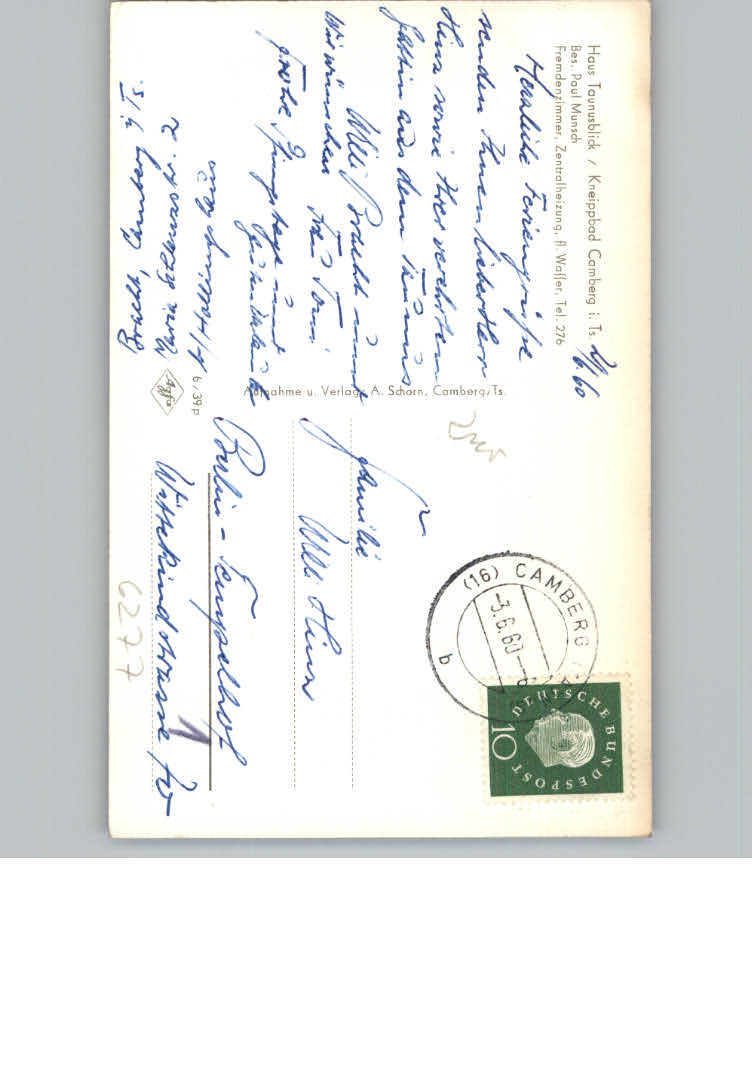 Haus Taunusblick / Kneippbad Camberg i. Ts.
Bes. Paul Munsch
Fremdenzimmer, Zentralheizung, fl. Wasser, Tel. 276
2/6.60
Herzliche Feriengrüße
senden Ihnen lieber Herr
Hinz sowie Ihrer verehrten
Gattin aus dem Taunus
Willi Bracht und
Frau Toni
Wir wünschen
frohe Pfingsttage und
gute
Aufnahme u. Verlag: A. Schorn, Camberg/Ts.
6/39 p
Agfa
Familie
Willi Hinz
Berlin - Tempelhof
Wittekindstrasse
(16) CAMBERG
-3.6.60
b
DEUTSCHE BUNDESPOST
10
6277